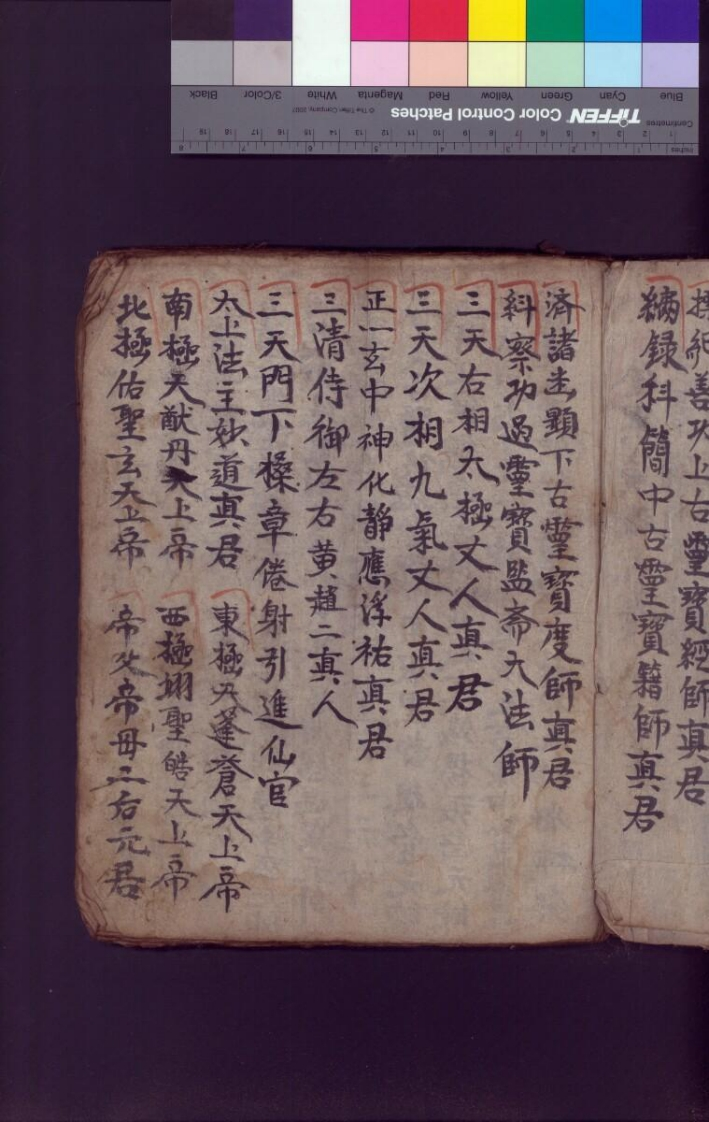 善功上古靈寶經師真君
籙科簡中古靈寶籍師真君
済諸迷顯下古靈寶度師真君
糾察功過靈寶監斋大法師
三天右相太極丈人真君
三天次相九氣丈人真君
正一玄中神化静應浮祐真君
三清侍御左右黄趙二真人
三天門下操章傳射引進仙官
太上法主妙道真君
東極天蓬蒼天上帝
南極天猷丹天上帝
西極翊聖皓天上帝
北極佑聖玄天上帝
帝父帝母二后元君
Inches
Centimetres
TIFFEN Color Control Patches
© The Tiffen Company, 2007
Blue Cyan Green Yellow Red Magenta White 3/Color Black